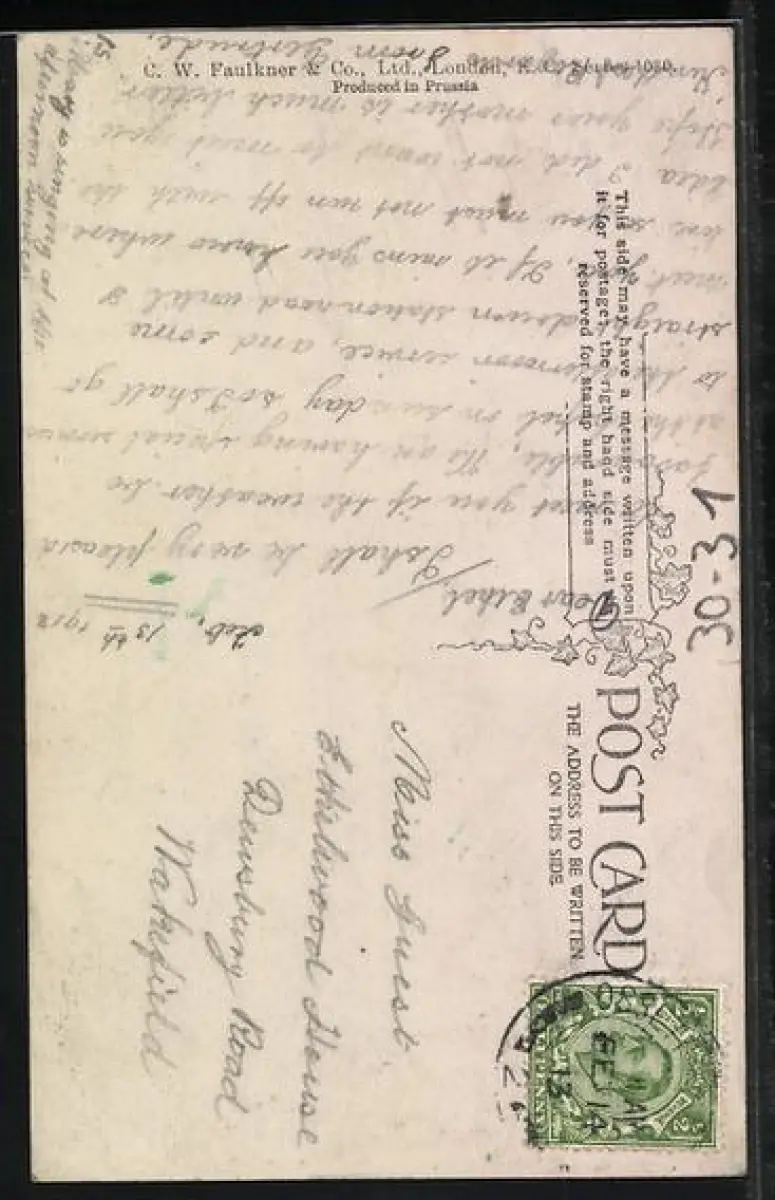 C. W. Faulkner & Co., Ltd., London, E.C. Series 1030.
Produced in Prussia
POST CARD
This side may have a message written upon
it for postage, the right hand side must be
reserved for stamp and address
THE ADDRESS TO BE WRITTEN
ON THIS SIDE.
30-31
Feb. 13th 1913
Dear Ethel
I shall be very pleased
to meet you if the weather be
favourable, We are having special services
at the chapel on sunday so I shall go
to the afternoon service, and come
straight down station road until I
meet you, If it rains you know where
live so you must not run off with the
idea I did not want to meet you
Hope your mother is much better
from Gertrude.
is singing at
afternoon service
Miss Guest
Ethelwood House
Dewsbury Road
Wakefield
FE 14
13